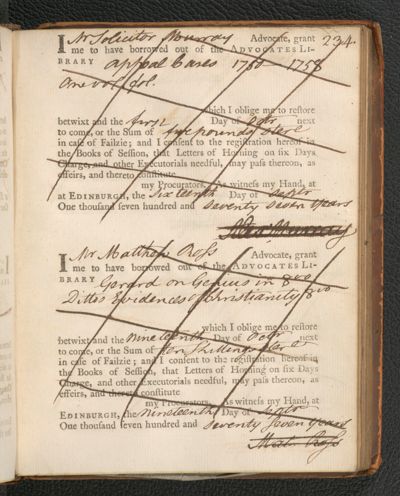 234.
I Mr Solicitor Murray Advocate, grant
me to have borrowed out of the ADVOCATES LI-
BRARY Appeal Cases 1750 1758
One vol. fol.
which I oblige me to restore
betwixt and the first Day of Octr next
to come, or the Sum of five pounds Sterl
in case of Failzie; and I consent to the registration hereof in
the Books of Session, that Letters of Horning on six Days
Charge, and other Executorials needful, may pass thereon, as
effeirs, and thereto constitute
my Procurators. As witness my Hand, at
at EDINBURGH, the Sixteenth Day of Septr
One thousand seven hundred and Seventy Seven Years
Alexr Murray
I Mr Matthew Ross Advocate, grant
me to have borrowed out of the ADVOCATES LI-
BRARY Gerard on Genius in 8vo
Ditto's Evidences of Christianity 8vo
which I oblige me to restore
betwixt and the nineteenth Day of Octr next
to come, or the Sum of Ten Shillings
in case of Failzie; and I consent to the registration hereof in
the Books of Session, that Letters of Horning on six Days
Charge, and other Executorials needful, may pass thereon, as
effeirs, and thereto constitute
my Procurators. As witness my Hand, at
EDINBURGH, the nineteenth Day of Septr
One thousand seven hundred and Seventy Seven Years
Matt. Ross